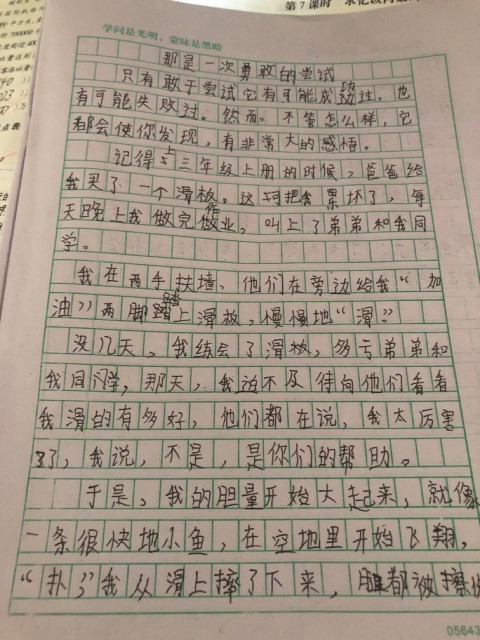 第7课时
学问是光明,蒙昧是黑暗
那是一次勇敢的尝试
只有敢于尝试它有可能成功过,也
有可能失败过。然而,不管怎么样,它
都会使你发现,有非常大的感悟。
记得上三年级上册的时候,爸爸给
我买了一个滑板。这可把我累坏了,每
天晚上我做完作业,叫上了弟弟和我同
学。
我在两手扶墙,他们在旁边给我“加
油”两脚踏上滑板,慢慢地“滑”
没几天,我练会了滑板,多亏弟弟和
我同学,那天,我迫不及待向他们看看
我滑的有多好,他们都在说,我太厉害
了,我说,不是,是你们的帮助。
于是,我的胆量开始大起来,就像
一条很快地小鱼,在空地里开始飞翔,
“扑”我从滑上摔了下来,腿都被擦
05643